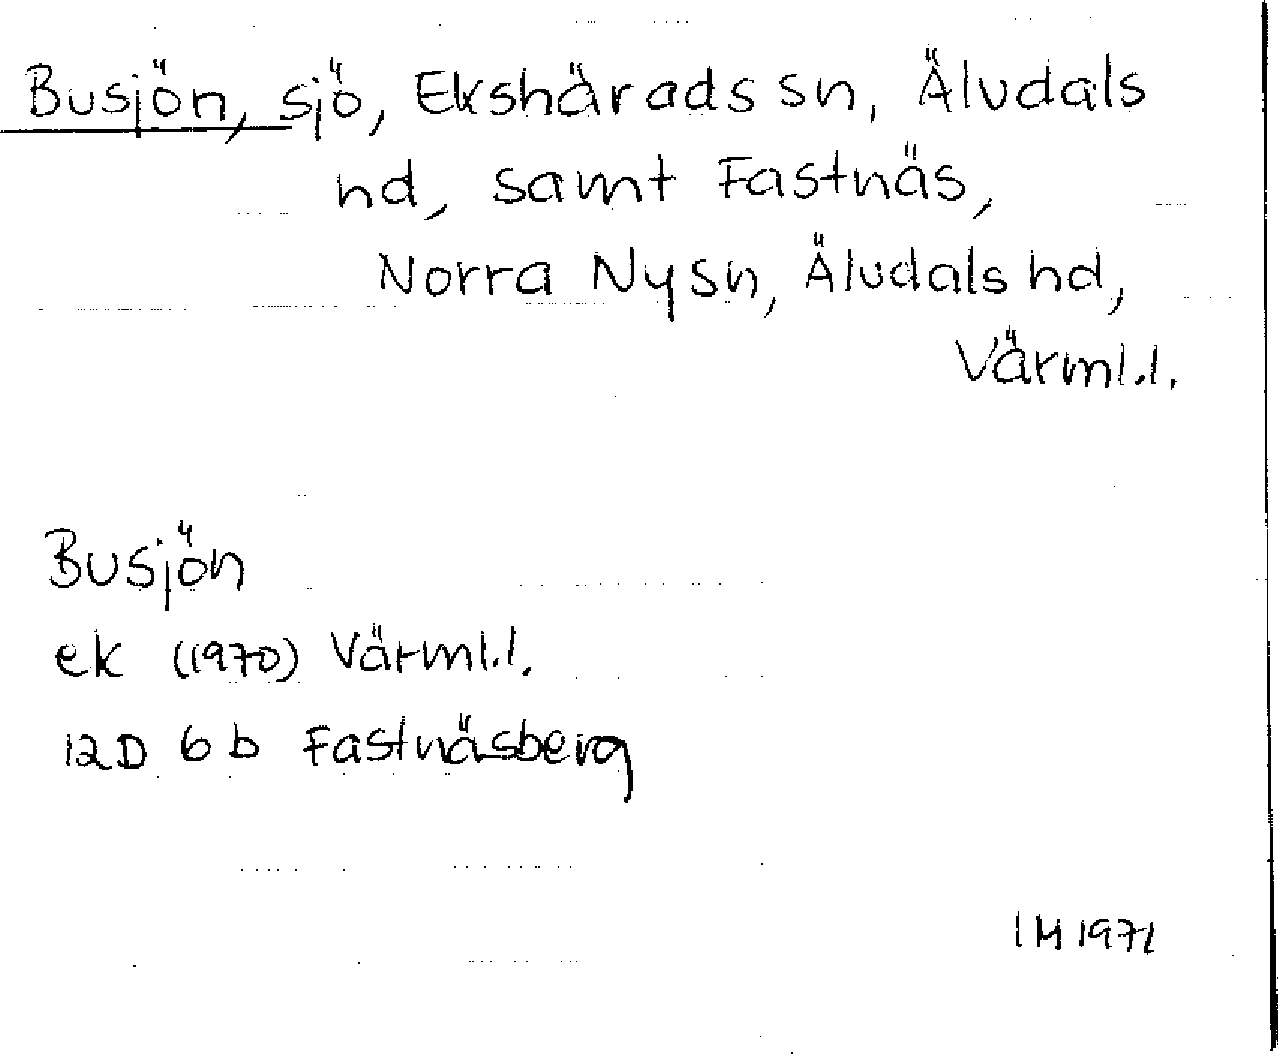 Busjön, sjö, Ekshärads sn, Älvdals
hd, samt Fastnäs,
Norra Ny sn, Älvdals hd,
Värml.l.
Busjön
ek (1970) Värml.l.
12D 6b Fastnäsberg
IM 1971